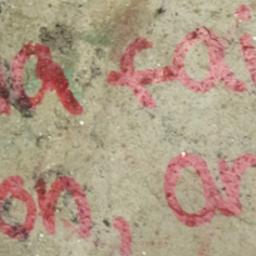 a fai
on, an